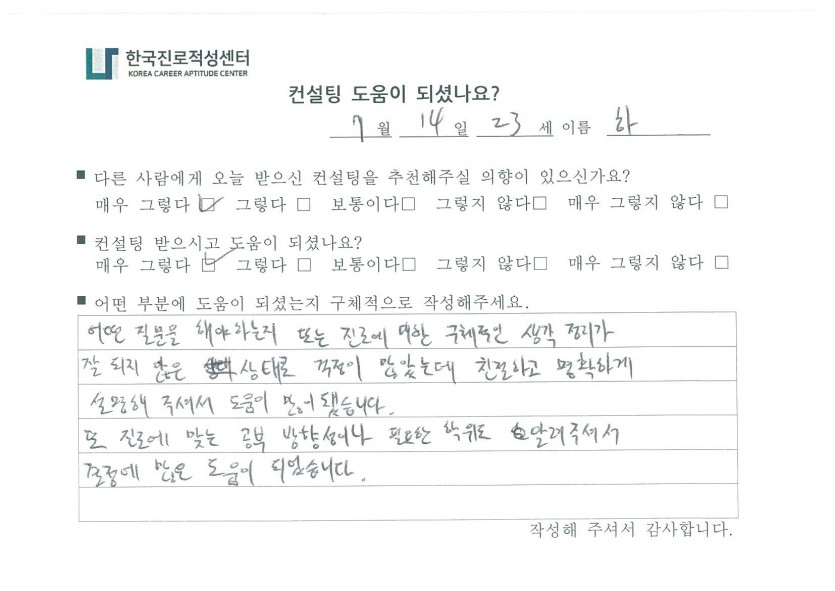 한국진로적성센터
KOREA CAREER APTITUDE CENTER
컨설팅 도움이 되셨나요?
7 월 14 일 23 세 이름 하
■ 다른 사람에게 오늘 받으신 컨설팅을 추천해주실 의향이 있으신가요?
매우 그렇다 ☑ 그렇다 □ 보통이다□ 그렇지 않다□ 매우 그렇지 않다 □
■ 컨설팅 받으시고 도움이 되셨나요?
매우 그렇다 ☑ 그렇다 □ 보통이다□ 그렇지 않다□ 매우 그렇지 않다 □
■ 어떤 부분에 도움이 되셨는지 구체적으로 작성해주세요.
어떤 질문을 해야하는지 또는 진로에 대한 구체적인 생각 정리가
잘 되지 않은 상태로 걱정이 많았는데 친절하고 명확하게
설명해 주셔서 도움이 많이 됐습니다.
또 진로에 맞는 공부 방향성이나 필요한 학위도 알려주셔서
결정에 많은 도움이 되었습니다.
작성해 주셔서 감사합니다.